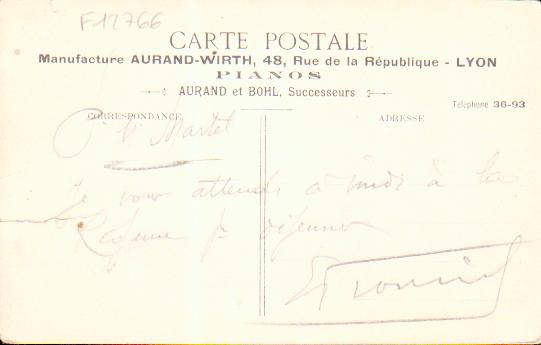 F12766
CARTE POSTALE
Manufacture AURAND-WIRTH, 48, Rue de la République - LYON
PIANOS
AURAND et BOHL, Successeurs
Téléphone 36-93
CORRESPONDANCE
ADRESSE
Martel
Je vous attends à midi à la
pr déjeuner